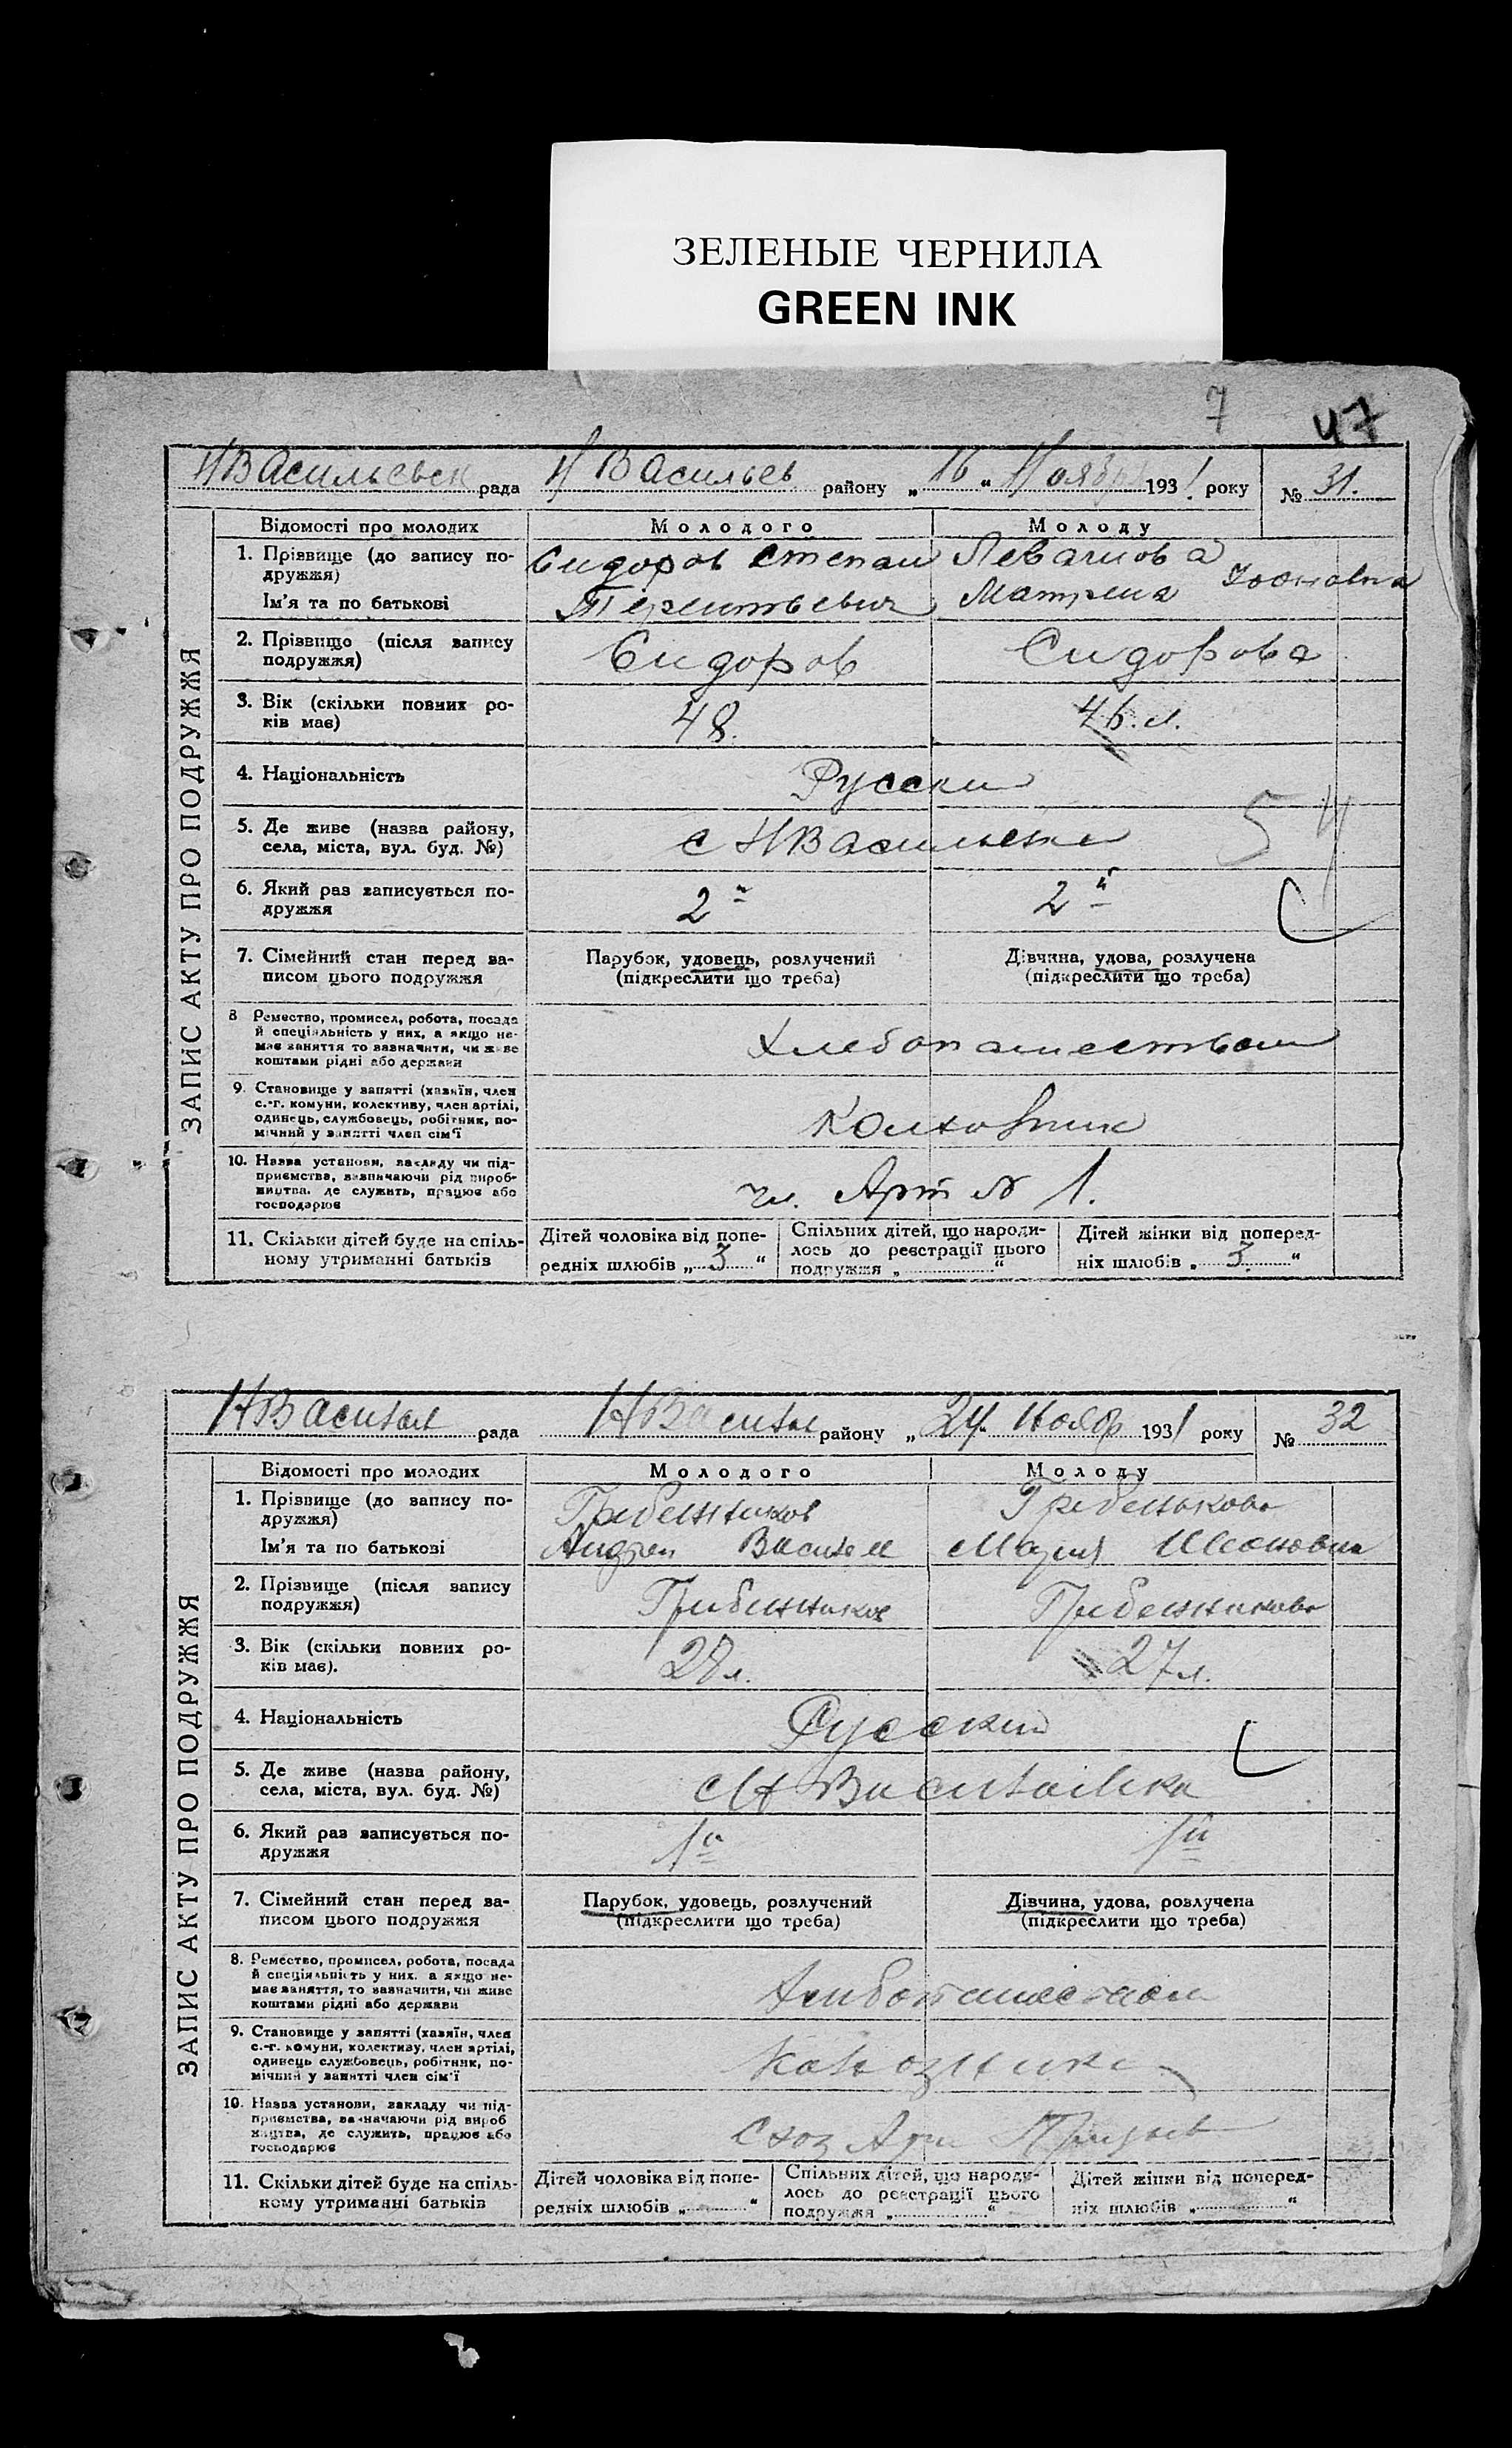 ЗЕЛЕНЫЕ ЧЕРНИЛА
GREEN INK
7 47
НВасильевск рада Н Васильев району „16“ Ноябр 1931 року № 31.
ЗАПИС АКТУ ПРО ПОДРУЖЖЯ
Відомості про молодих Молодого Молоду
1. Прізвище (до запису по-
дружжя)
Ім'я та по батькові
Сидоров Степан
Терентьевич
Матрена
2. Прізвище (після запису
подружжя)
Сидоров Сидорова
3. Вік (скільки повних ро-
ків має)
48. 46.л.
4. Національність
Русски
5. Де живе (назва району,
села, міста, вул. буд. №)
с НВасильевка
6. Який раз записується по-
дружжя
2й 2й
7. Сімейний стан перед за-
писом цього подружжя
Парубок, удовець, розлучений
(підкреслити що треба)
Дівчина, удова, розлучена
(підкреслити що треба)
8 Ремество, промисел, робота, посада
й спеціяльність у них, а якщо не-
має заняття то зазначити, чи живе
коштами рідні або держави
Хлебопашеством
9. Становище у занятті (хазяїн, член
с.-г. комуни, колективу, член артілі,
одинець, службовець, робітник, по-
мічний у занятті член сім'ї
Колховник
10. Назва установи, закладу чи під-
приємства, зазначаючи рід вироб-
ництва, де служить, працює або
господарює
чл. Арт № 1.
11. Скільки дітей буде на спіль-
ному утриманні батьків
Дітей чоловіка від попе-
редніх шлюбів „ 3 “
Спільних дітей, що народи-
лось до реєстрації цього
подружжя „ “
Дітей жінки від поперед-
ніх шлюбів „ 3. “
НВасильев рада НВасильев району „24 Ноябр 1931 року № 32
ЗАПИС АКТУ ПРО ПОДРУЖЖЯ
Відомості про молодих Молодого Молоду
1. Прізвище (до запису по-
дружжя)
Ім'я та по батькові
Гребенников
Андрей Василев
Гребенькова
Мария
2. Прізвище (після запису
подружжя)
Грибенников Гребенникова
3. Вік (скільки повних ро-
ків має).
28л. 27л.
4. Національність
Русский
5. Де живе (назва району,
села, міста, вул. буд. №)
с Н Василевка
6. Який раз записується по-
дружжя
1й 1й
7. Сімейний стан перед за-
писом цього подружжя
Парубок, удовець, розлучений
(підкреслити що треба)
Дівчина, удова, розлучена
(підкреслити що треба)
8. Ремество, промисел, робота, посада
й спеціяльність у них. а якщо не-
має заняття, то зазначити, чи живе
коштами рідні або держави
9. Становище у занятті (хазяїн, член
с.-г. комуни, колективу, член артілі,
одинець службовець, робітник, по-
мічний у занятті член сім'ї
Колхозники
10. Назва установи, закладу чи під-
приємства, зазначаючи рід вироб
ництва, де служить, працює або
господарює
Схоз Арт
11. Скільки дітей буде на спіль-
ному утриманні батьків
Дітей чоловіка від попе-
редніх шлюбів „ “
Спільних дітей, що народи-
лось до реєстрації цього
подружжя „ “
Дітей жінки від поперед-
ніх шлюбів „ “